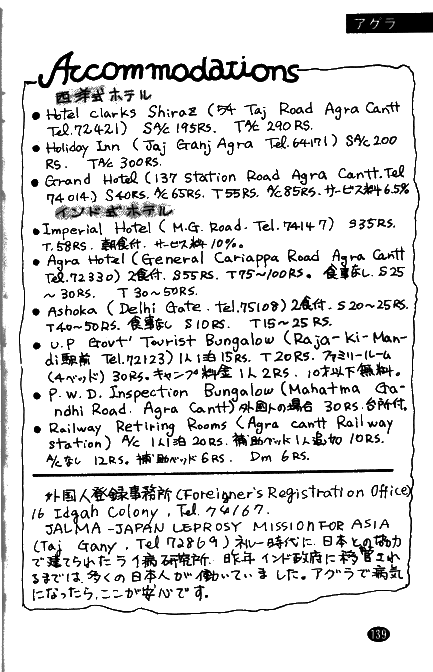 アグラ
Accommodations
西洋式ホテル
● Hotel clarks Shiraz (54 Taj Road Agra Cantt
Tel.72421) S A/c 195RS. T A/c 290RS.
● Holiday Inn (Taj Ganj Agra Tel.64171) S A/c 200
RS. T A/c 300RS.
● Grand Hotel (137 Station Road Agra Cantt. Tel
74014) S40RS. A/c 65RS. T55RS. A/c 85RS. サービス料6.5%
インド式ホテル
● Imperial Hotel (M.G. Road. Tel.74147) S35RS.
T.58RS. 朝食付. サービス料10%。
● Agra Hotel (General Cariappa Road Agra Cantt
Tel.72330) 2食付. S55RS. T75〜100RS。食事なし. S25
〜30RS. T30〜50RS.
● Ashoka (Delhi Gate. tel.75108) 2食付. S20〜25RS.
T40〜50RS. 食事なし S10RS. T15〜25RS.
● U.P Govt' Tourist Bungalow (Raja-Ki-Man-
di駅前 Tel.72123) 1人1泊15RS. T20RS. ファミリールーム
(4ベッド) 30RS。キャンプ料金1人2RS. 10才以下無料。
● P.W.D. Inspection Bungalow (Mahatma Ga-
ndhi Road. Agra Cantt) 外国人の場合 30RS. 台所付。
● Railway Retiring Rooms (Agra cantt Railway
station) A/c 1人1泊20RS. 補助ベッド1人追加10RS.
A/cなし 12RS。補助ベッド6RS. Dm 6RS.
外国人登録事務所(Foreigner's Registration Office)
16 Idgah Colony. Tel.74167.
JALMA-JAPAN LEPROSY MISSION FOR ASIA
(Taj Gany. Tel 72869) ネルー時代に、日本との協力
で建てられたライ病研究所. 昨年インド政府に移管され
るまでは、多くの日本人が働いていました。アグラで病気
になったら、ここが安心です。
139